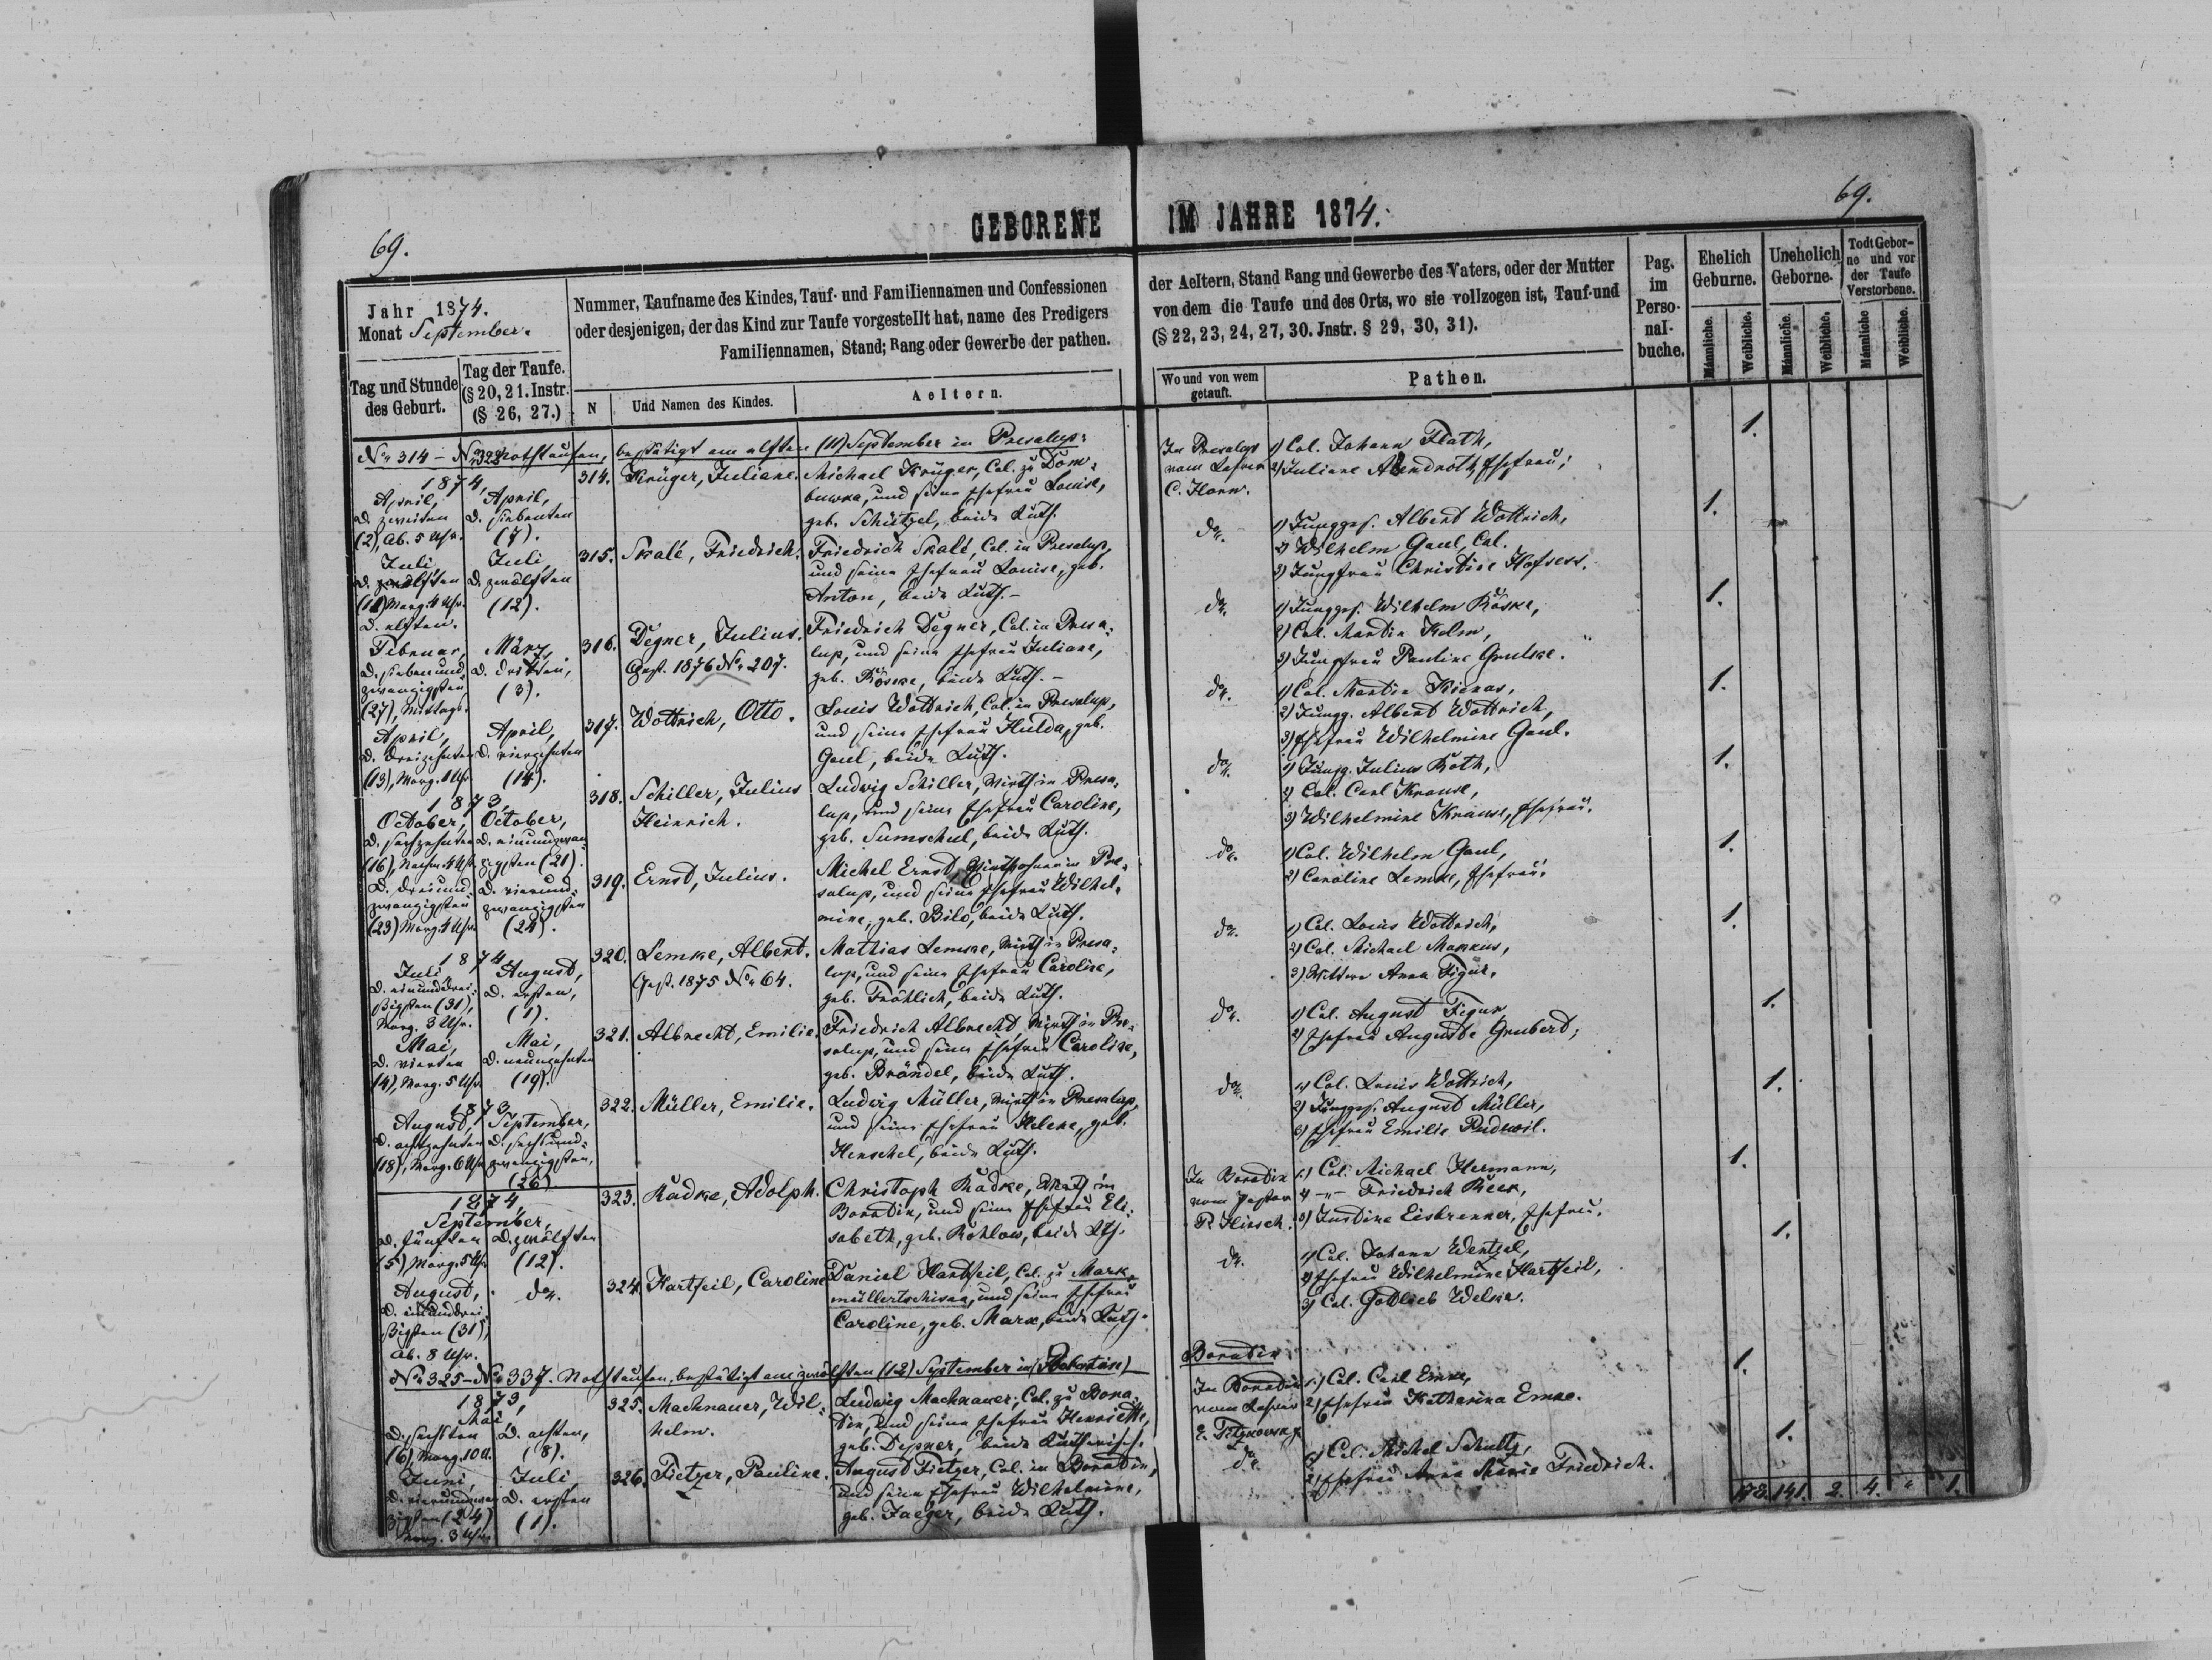 69.
GEBORENE IM JAHRE 1874.
69.
Jahr 1874.
Monat September.
Tag und Stunde
des Geburt.
Tag der Taufe.
(§ 20, 21. Instr.
(§ 26, 27.)
Nummer, Taufname des Kindes, Tauf- und Familiennamen und Confessionen
oder desjenigen, der das Kind zur Taufe vorgestellt hat, name des Predigers
Familiennamen, Stand; Rang oder Gewerbe der pathen.
N
Und Namen des Kindes.
Aeltern.
der Aeltern, Stand Rang und Gewerbe des Vaters, oder der Mutter
von dem die Taufe und des Orts, wo sie vollzogen ist, Tauf-und
(§ 22, 23, 24, 27, 30. Jnstr. § 29, 30, 31).
Wo und von wem
getauft.
Pathen.
Pag.
im
Perso-
nal-
buche.
Ehelich
Geburne.
Unehelich
Geborne.
Todt Gebor-
ne und vor
der Taufe
Verstorbene.
Männliche.
Weibliche.
Männliche.
Weibliche.
Männliche
Weibliche.
No 314 – No 322 Nothtaufen, bestätigt am elften (11) September in Presalup:
1874,
April,
d. zweiten
(2), Ab. 5 Uhr.
April,
d. siebenten
(7).
314.
Krüger, Juliane.
Michael Krüger, Col. zu Dom-
buwka, und seine Ehefrau Louise,
geb. Schützel, beide Luth.
In Presalup
vom Lehrer
C. Horn.
1) Col. Johann Flath,
2) Juliane Abendroth, Ehefrau;
1.
Juli,
d. zwölften
(11) Morg. 4 Uhr.
d. elften.
Juli
d. zwölften
(12).
315.
Skalé, Friedrich.
Friedrich Skalé, Col. in Presalup,
und seine Ehefrau Louise, geb.
Anton, beide Luth. –
do.
1) Jungges. Albert Wottrich,
2) Wilhelm Gaul, Col.
3) Jungfrau Christine Hofsess.
1.
Februar,
d. siebenund
zwanzigsten
(27), Mittags.
März,
d. dritten,
(3).
316.
Degner, Julius.
Gest. 1876 No 207.
Friedrich Degner, Col. in Presa-
lup, und seine Ehefrau Juliane,
geb. Röske, beide Luth. –
do.
1) Jungges. Wilhelm Röske,
2) Col. Martin Kelm,
3) Jungfrau Pauline Grulke.
1.
April,
d. dreizehnten
(13), Morg. 1 Uhr
April,
d. vierzehnten
(14).
317.
Wottrich, Otto.
Louis Wottrich, Col. in Presalup,
und seine Ehefrau Hulda, geb.
Gaul, beide Luth.
do.
1) Col. Martin Kienas,
2) Jungg. Albert Wottrich,
3) Ehefrau Wilhelmine Gaul.
1.
1873,
October,
d. sechzehnten
(16), Nachm. 4 Uhr
October,
d. einundzwan-
zigsten (21).
318.
Schiller, Julius
Heinrich.
Ludwig Schiller, Wirth in Presa-
lup, und seine Ehefrau Caroline,
geb. Sumscheel, beide Luth.
do.
1) Jungg. Julius Roth,
2) Col. Carl Krause,
3) Wilhelmine Krause, Ehefrau.
1.
d. dreiund-
zwanzigsten
(23) Morg. 4 Uhr.
d. vierund-
zwanzigsten
(24).
319.
Ernst, Julius.
Michel Ernst, in Pre-
salup, und seine Ehefrau Wilhel-
mine, geb. Bilo, beide Luth.
do.
1) Col. Wilhelm Gaul,
2) Caroline Lemke, Ehefrau.
1.
1874,
Juli
d. einunddrei-
ßigsten (31),
Morg. 3 Uhr.
August,
d. ersten,
(1).
320.
Lemke, Albert.
Gest. 1875 No 64.
Mathias Lemke, Wirth in Presa-
lup, und seine Ehefrau Caroline,
geb. Fröhlich, beide Luth.
do.
1) Col. Louis Wottrich,
2) Col. Michael Markus,
3) Wittwe Anna Figur.
1.
Mai,
d. vierten
(4), Morg. 5 Uhr.
Mai,
d. neunzehnten
(19).
321.
Albrecht, Emilie.
Friedrich Albrecht, Wirth in Pre-
salup, und seine Ehefrau Caroline,
geb. Brändel, beide Luth.
do.
1) Col. August Figur,
2) Ehefrau Auguste Grubert;
1.
1873,
August,
d. achtzehnten
(18), Morg. 6 Uhr
September,
d. sechsund-
zwanzigsten,
(26)
322.
Müller, Emilie.
Ludwig Müller, Wirth in Presalup,
und seine Ehefrau Helene, geb.
Henschel, beide Luth.
do.
1) Col. Louis Wottrich,
2) Jungges. August Müller,
3) Ehefrau Emilie Pudwil.
1.
1874,
September,
d. fünften
(5), Morg. 5 Uhr.
d. zwölften
(12).
323.
Radke, Adolph.
Christoph Radke, Wirth in
Boratin, und seine Ehefrau Eli-
sabeth, geb. Rohlow, beide Lth.
In Boratin
vom Pastor
P. Hirsch.
1) Col. Michael Hermann,
2) –"– Friedrich Rieck,
3) Justine Eisbrenner, Ehefrau.
1.
August,
d. einunddrei-
ßigsten (31),
Ab. 8 Uhr.
do.
324.
Hartfeil, Caroline
Daniel Hartfeil, Col. zu Mark.
müllertschisna, und seine Ehefrau
Caroline, geb. Marx, beide Luth.
do.
1) Col. Johann Wentzel,
2) Ehefrau Wilhelmine Hartfeil,
3) Col. Gottlieb Welke.
1.
No 325 – No 337. Nothtaufen, bestätigt am zwölften (12) September in
Boratin
1873,
Mai,
d. sechsten
(6), Morg. 10 U.
d. achten,
(8).
325.
Machnauer, Wil-
helm.
Ludwig Machnauer, Col. zu Bora-
tin, und seine Ehefrau Henriette,
geb. Depner, beide Lutherisch.
In Boratin
vom Lehrer
1) Col. Carl Emke,
2) Ehefrau Katharina Emke.
1.
Juni,
d. vierundzwan
zigsten (24)
Morg. 3 Uhr.
Juli
d. ersten
(1).
326.
Fietzer, Pauline.
August Fietzer, Col. in Boratin,
und seine Ehefrau Wilhelmine,
geb. Jaeger, beide Luth.
do.
1) Col. Michel Schultz,
2) Ehefrau Anna Marie Friedrich.
1.
178. 141. 2. 4. " 1.